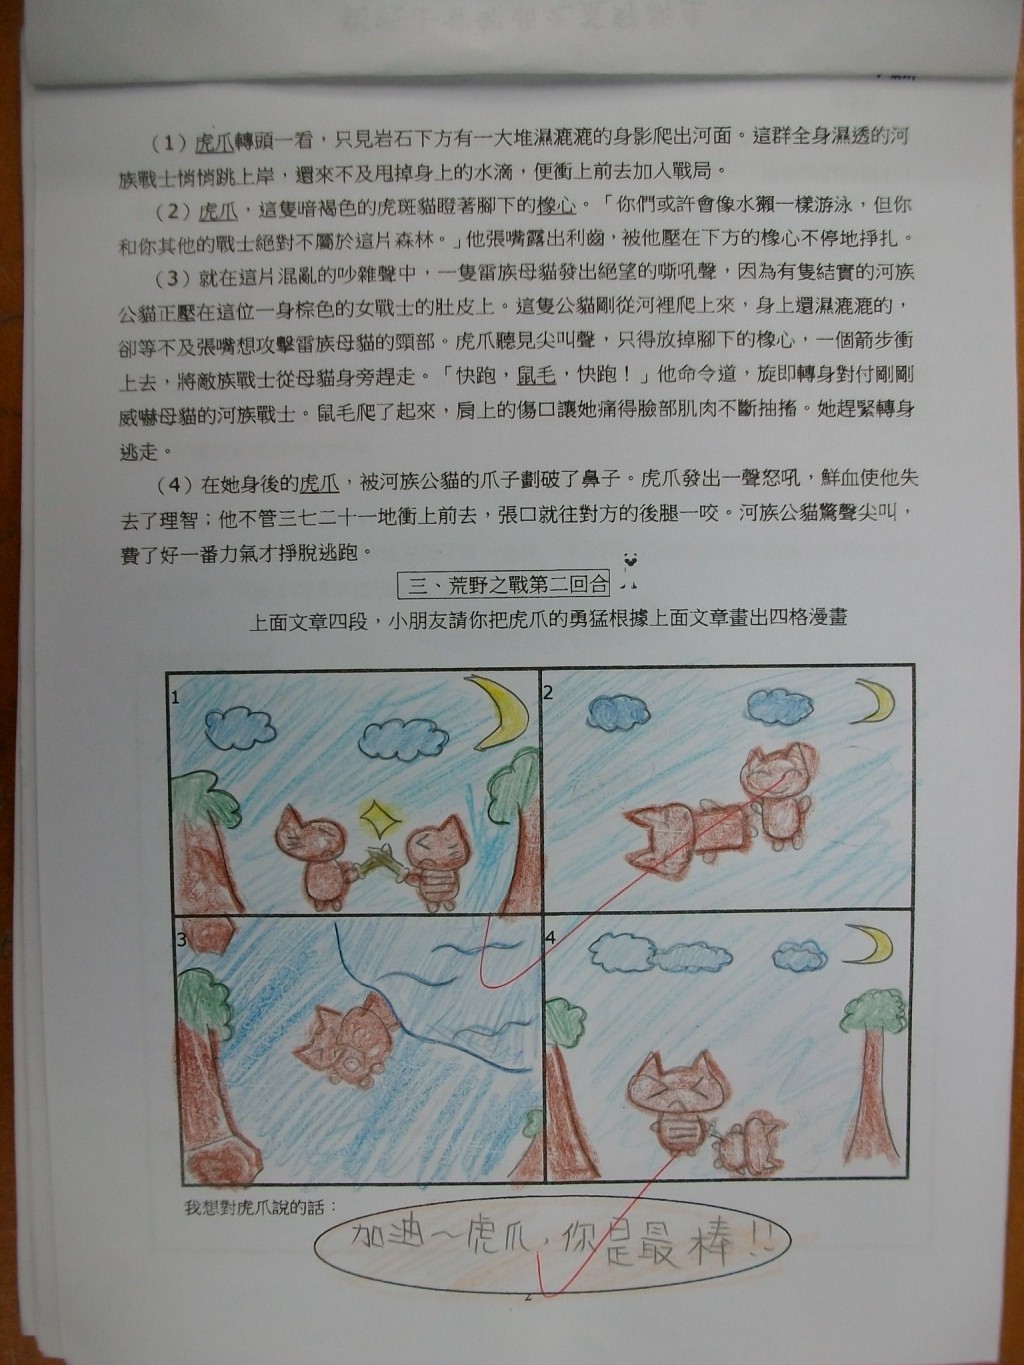 （1）虎爪轉頭一看，只見岩石下方有一大堆濕漉漉的身影爬出河面。這群全身濕透的河
族戰士悄悄跳上岸，還來不及甩掉身上的水滴，便衝上前去加入戰局。
（2）虎爪，這隻暗褐色的虎斑貓瞪著腳下的橡心。「你們或許會像水獺一樣游泳，但你
和你其他的戰士絕對不屬於這片森林。」他張嘴露出利齒，被他壓在下方的橡心不停地掙扎。
（3）就在這片混亂的吵雜聲中，一隻雷族母貓發出絕望的嘶吼聲，因為有隻結實的河族
公貓正壓在這位一身棕色的女戰士的肚皮上。這隻公貓剛從河裡爬上來，身上還濕漉漉的，
卻等不及張嘴想攻擊雷族母貓的頸部。虎爪聽見尖叫聲，只得放掉腳下的橡心，一個箭步衝
上去，將敵族戰士從母貓身旁趕走。「快跑，鼠毛，快跑！」他命令道，旋即轉身對付剛剛
威嚇母貓的河族戰士。鼠毛爬了起來，肩上的傷口讓她痛得臉部肌肉不斷抽搐。她趕緊轉身
逃走。
（4）在她身後的虎爪，被河族公貓的爪子劃破了鼻子。虎爪發出一聲怒吼，鮮血使他失
去了理智；他不管三七二十一地衝上前去，張口就往對方的後腿一咬。河族公貓驚聲尖叫，
費了好一番力氣才掙脫逃跑。
三、荒野之戰第二回合
上面文章四段，小朋友請你把虎爪的勇猛根據上面文章畫出四格漫畫
1
2
3
4
我想對虎爪說的話：
加油～虎爪，你是最棒!!
2